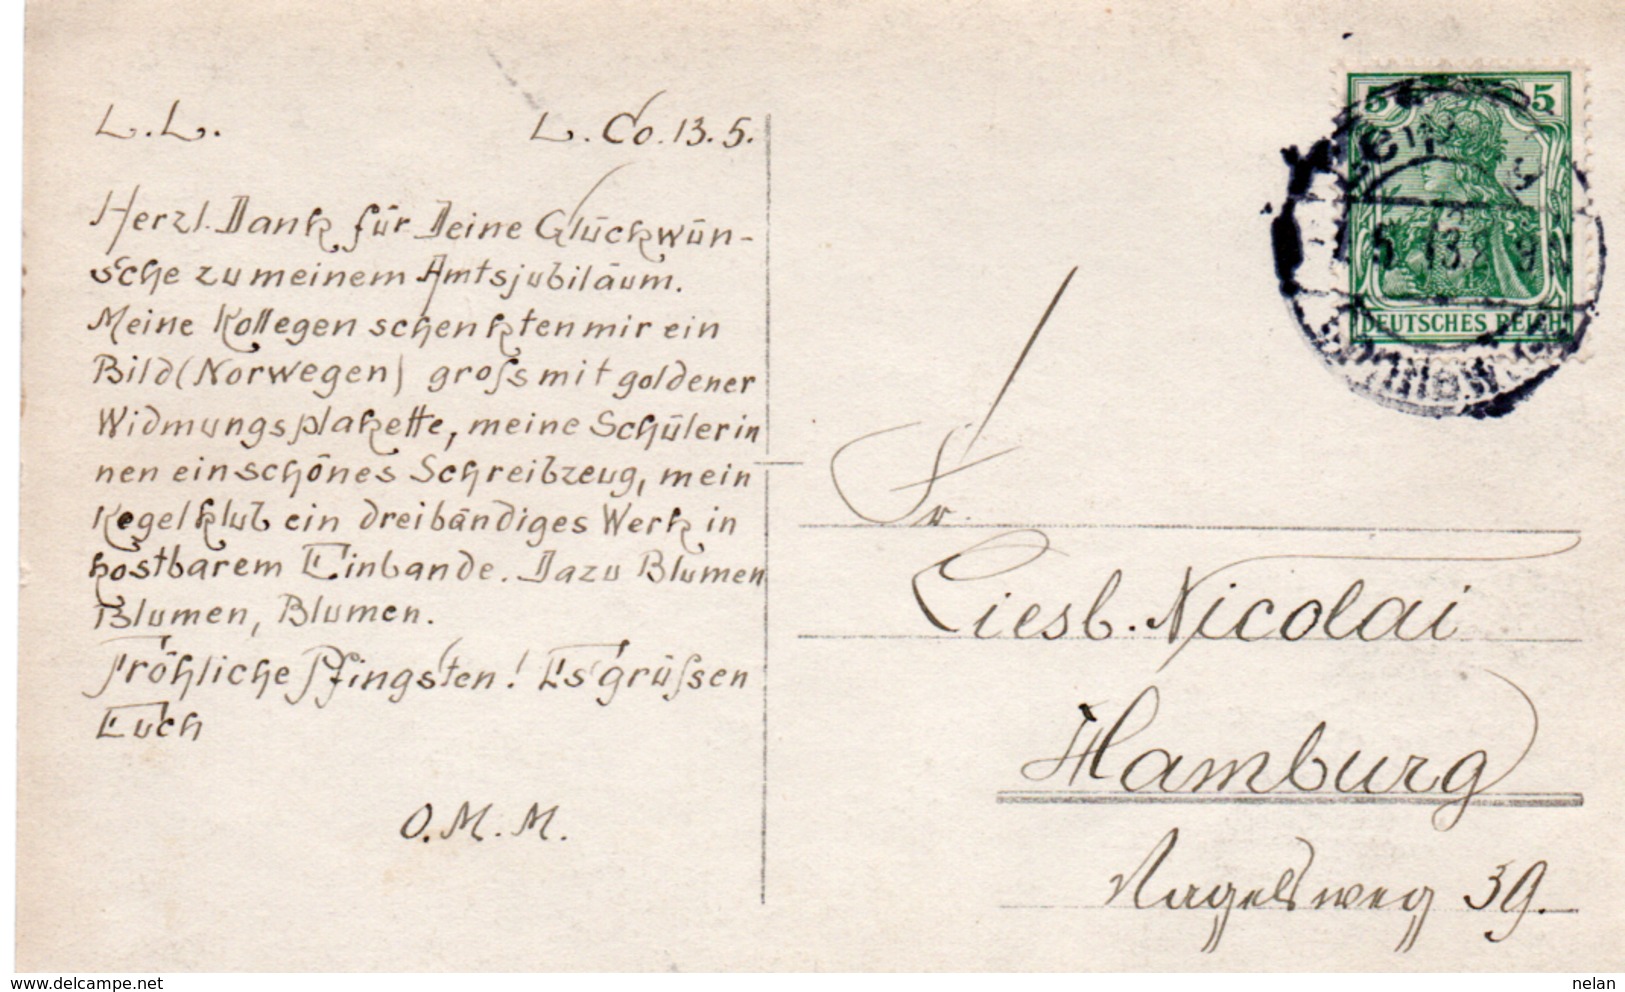 L.L. L. Co. 13. 5.
Herzl. Dank für Deine Glückwün-
sche zu meinem Amtsjubiläum.
Meine Kollegen schenkten mir ein
Bild (Norwegen) gross mit goldener
Widmungsplakette, meine Schülerin
nen ein schönes Schreibzeug, mein
Kegelklub ein dreibändiges Werk in
kostbarem Einbande. Dazu Blumen
Blumen, Blumen.
Fröhliche Pfingsten! Es grüssen
Euch
O.M.M.
5 5
DEUTSCHES REICH
Fr.
Liesb. Nicolai
Hamburg
Nagelsweg 39.
www.delcampe.net
nelan